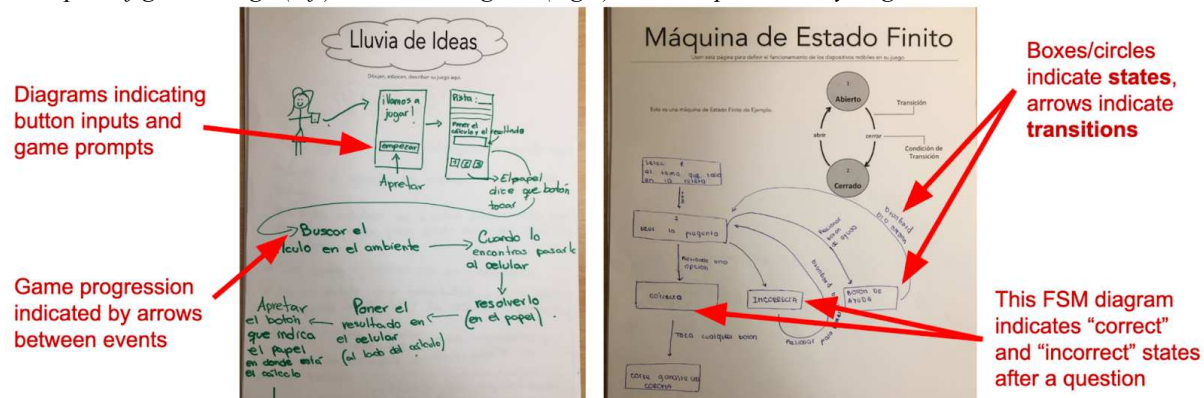 Diagrams indicating
button inputs and
game prompts
Game progression
indicated by arrows
between events
Lluvia de Ideas
Dibujen, esbocen, describir su juego aquí.
¡Vamos a
jugar!
empezar
Apretar
Pista:
Poner el
cálculo y el resultado
1 2 3
El papel
dice que botón
tocar
Buscar el
culo en el ambiente
Cuando lo
encontras pasarle
al celular
resolverlo
(en el papel)
Poner el
resultado en
el celular
(al lado del cálculo)
Apretar
el botón
que indica
el papel
en donde está
el cálculo
Máquina de Estado Finito
Usen esta página para definir el funcionamiento de los dispositivos mobiles en su juego
Este es una máquina de Estado Finito de Ejemplo.
1
Abierto
Transición
abrir
cerrar
Condición de
Transición
2
Cerrado
1
el tema que salió
en la ruleta
2
leer la pregunta
Presionar
boton
de ayuda
Presionar una
opcion
correcta
INCORRECTA
BOTON DE
AYUDA
Toca cualquier boton
Presionar para
CORONA
Boxes/circles
indicate states,
arrows indicate
transitions
This FSM diagram
indicates “correct”
and “incorrect” states
after a question